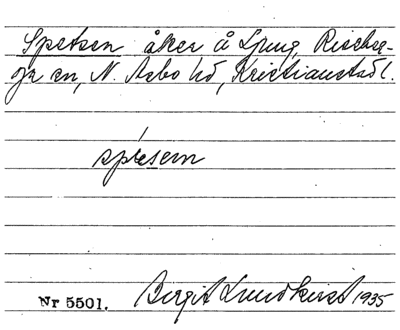 Spetsen åker å Ljung, Riseber-
ga sn, N. Åsbo hd, Kristianstads l.
spɛ́sern
Nr 5501. Birgit Lundkvist 1935